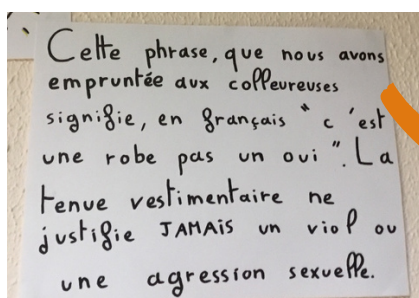 Cette phrase, que nous avons
empruntée aux colleureuses
signifie, en français " c'est
une robe pas un oui ". La
tenue vestimentaire ne
justifie JAMAIS un viol ou
une agression sexuelle.